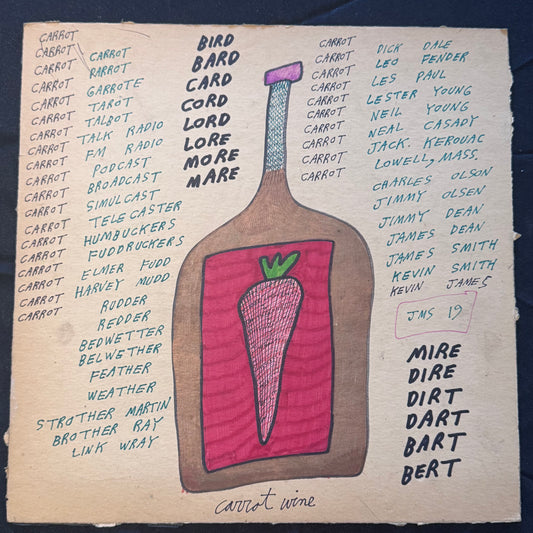 CARROT
CARROT
CARROT
CARROT
CARROT
CARROT
CARROT
CARROT
CARROT
CARROT
CARROT
CARROT
CARROT
CARROT
CARROT
CARROT
CARROT
CARROT
CARROT
PARROT
GARROTE
TAROT
TALBOT
TALK RADIO
FM RADIO
PODCAST
BROADCAST
SIMULCAST
TELECASTER
HUMBUCKERS
FUDDRUCKERS
ELMER FUDD
HARVEY MUDD
RUDDER
REDDER
BEDWETTER
BELWETHER
FEATHER
WEATHER
STROTHER MARTIN
BROTHER RAY
LINK WRAY
BIRD
BARD
CARD
CORD
LORD
LORE
MORE
MARE
CARROT
CARROT
CARROT
CARROT
CARROT
CARROT
CARROT
CARROT
CARROT
DICK DALE
LEO FENDER
LES PAUL
LESTER YOUNG
NEIL YOUNG
NEAL CASADY
JACK KEROUAC
LOWELL, MASS.
CHARLES OLSON
JIMMY OLSEN
JIMMY DEAN
JAMES DEAN
JAMES SMITH
KEVIN SMITH
KEVIN JAMES
JMS 19
MIRE
DIRE
DIRT
DART
BART
BERT
carrot wine